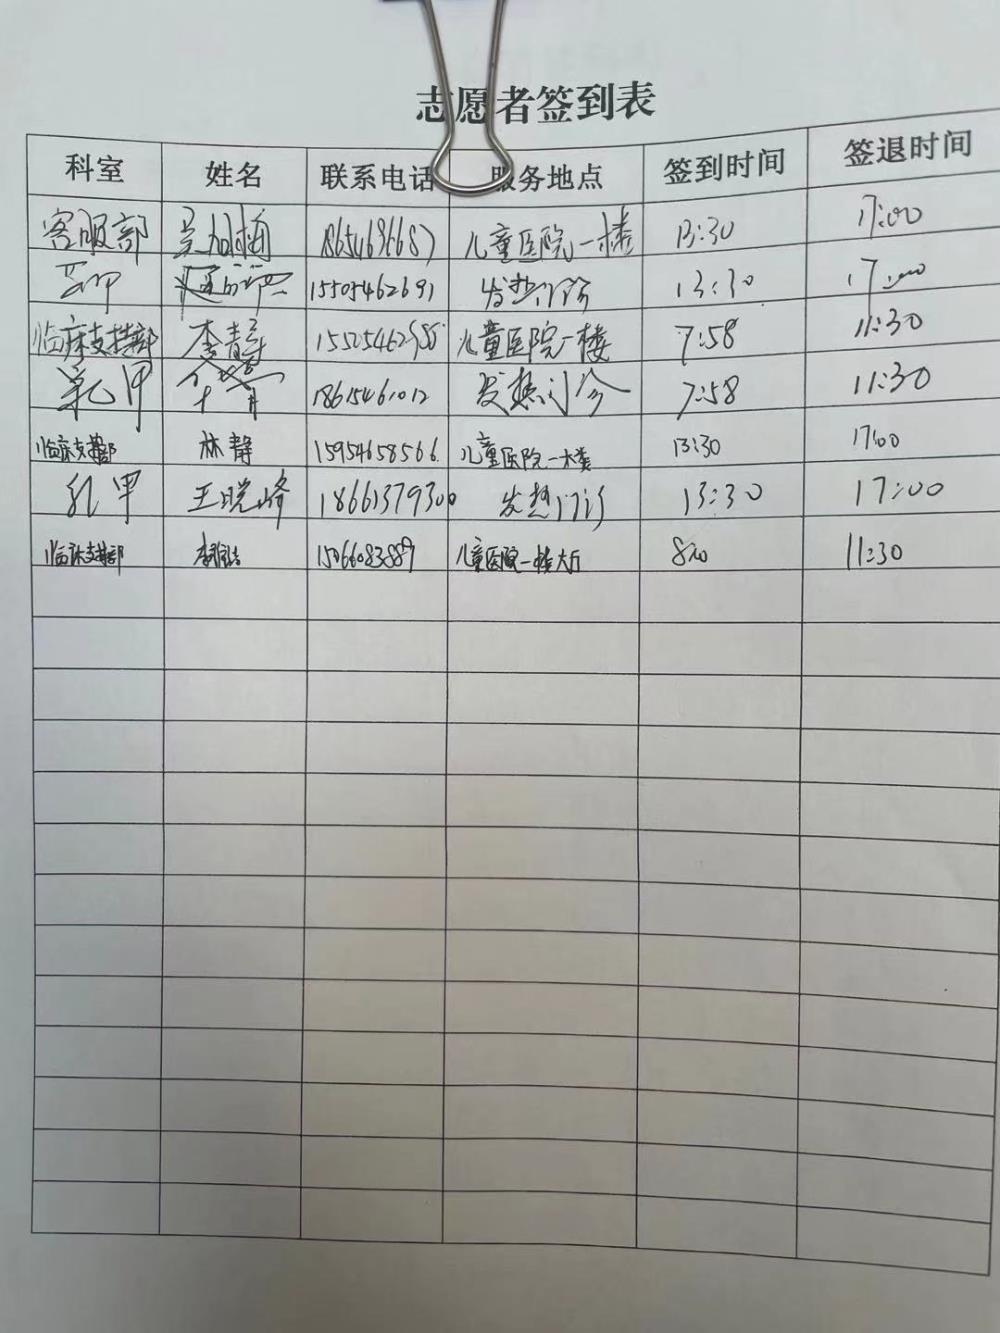 志愿者签到表
科室 姓名 联系电话 服务地点 签到时间 签退时间
客服部 儿童医院一楼 13:30 17:00
15505462691 发热门诊 13:30 17:00
临床支持部 李静 儿童医院一楼 7:58 11:30
乳甲 18615461012 发热门诊 7:58 11:30
临床支持部 林静 15954658566 儿童医院一楼 13:30 17:00
乳甲 王晓峰 18661379300 发热门诊 13:30 17:00
临床支持部 15066083889 儿童医院一楼大厅 8:00 11:30